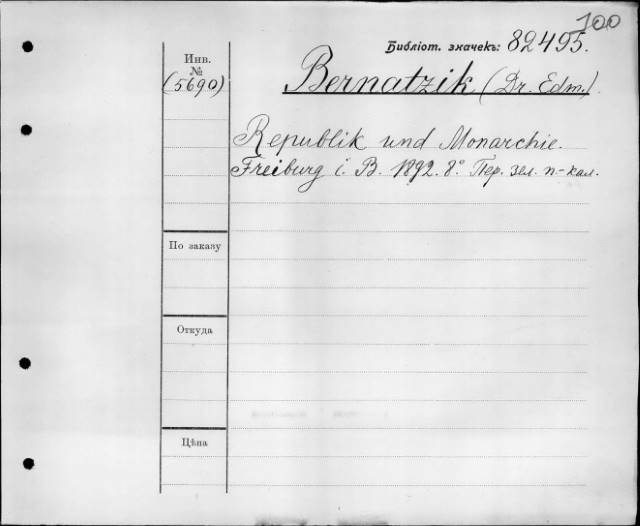 100
Библіот. значекъ: 82495.
Инв.
№
(5690)
Bernatzik (Dr. Edm.).
Republik und Monarchie.
Freiburg i. B. 1892. 8° Пер. зел. п-кал.
По заказу
Откуда
Цѣна